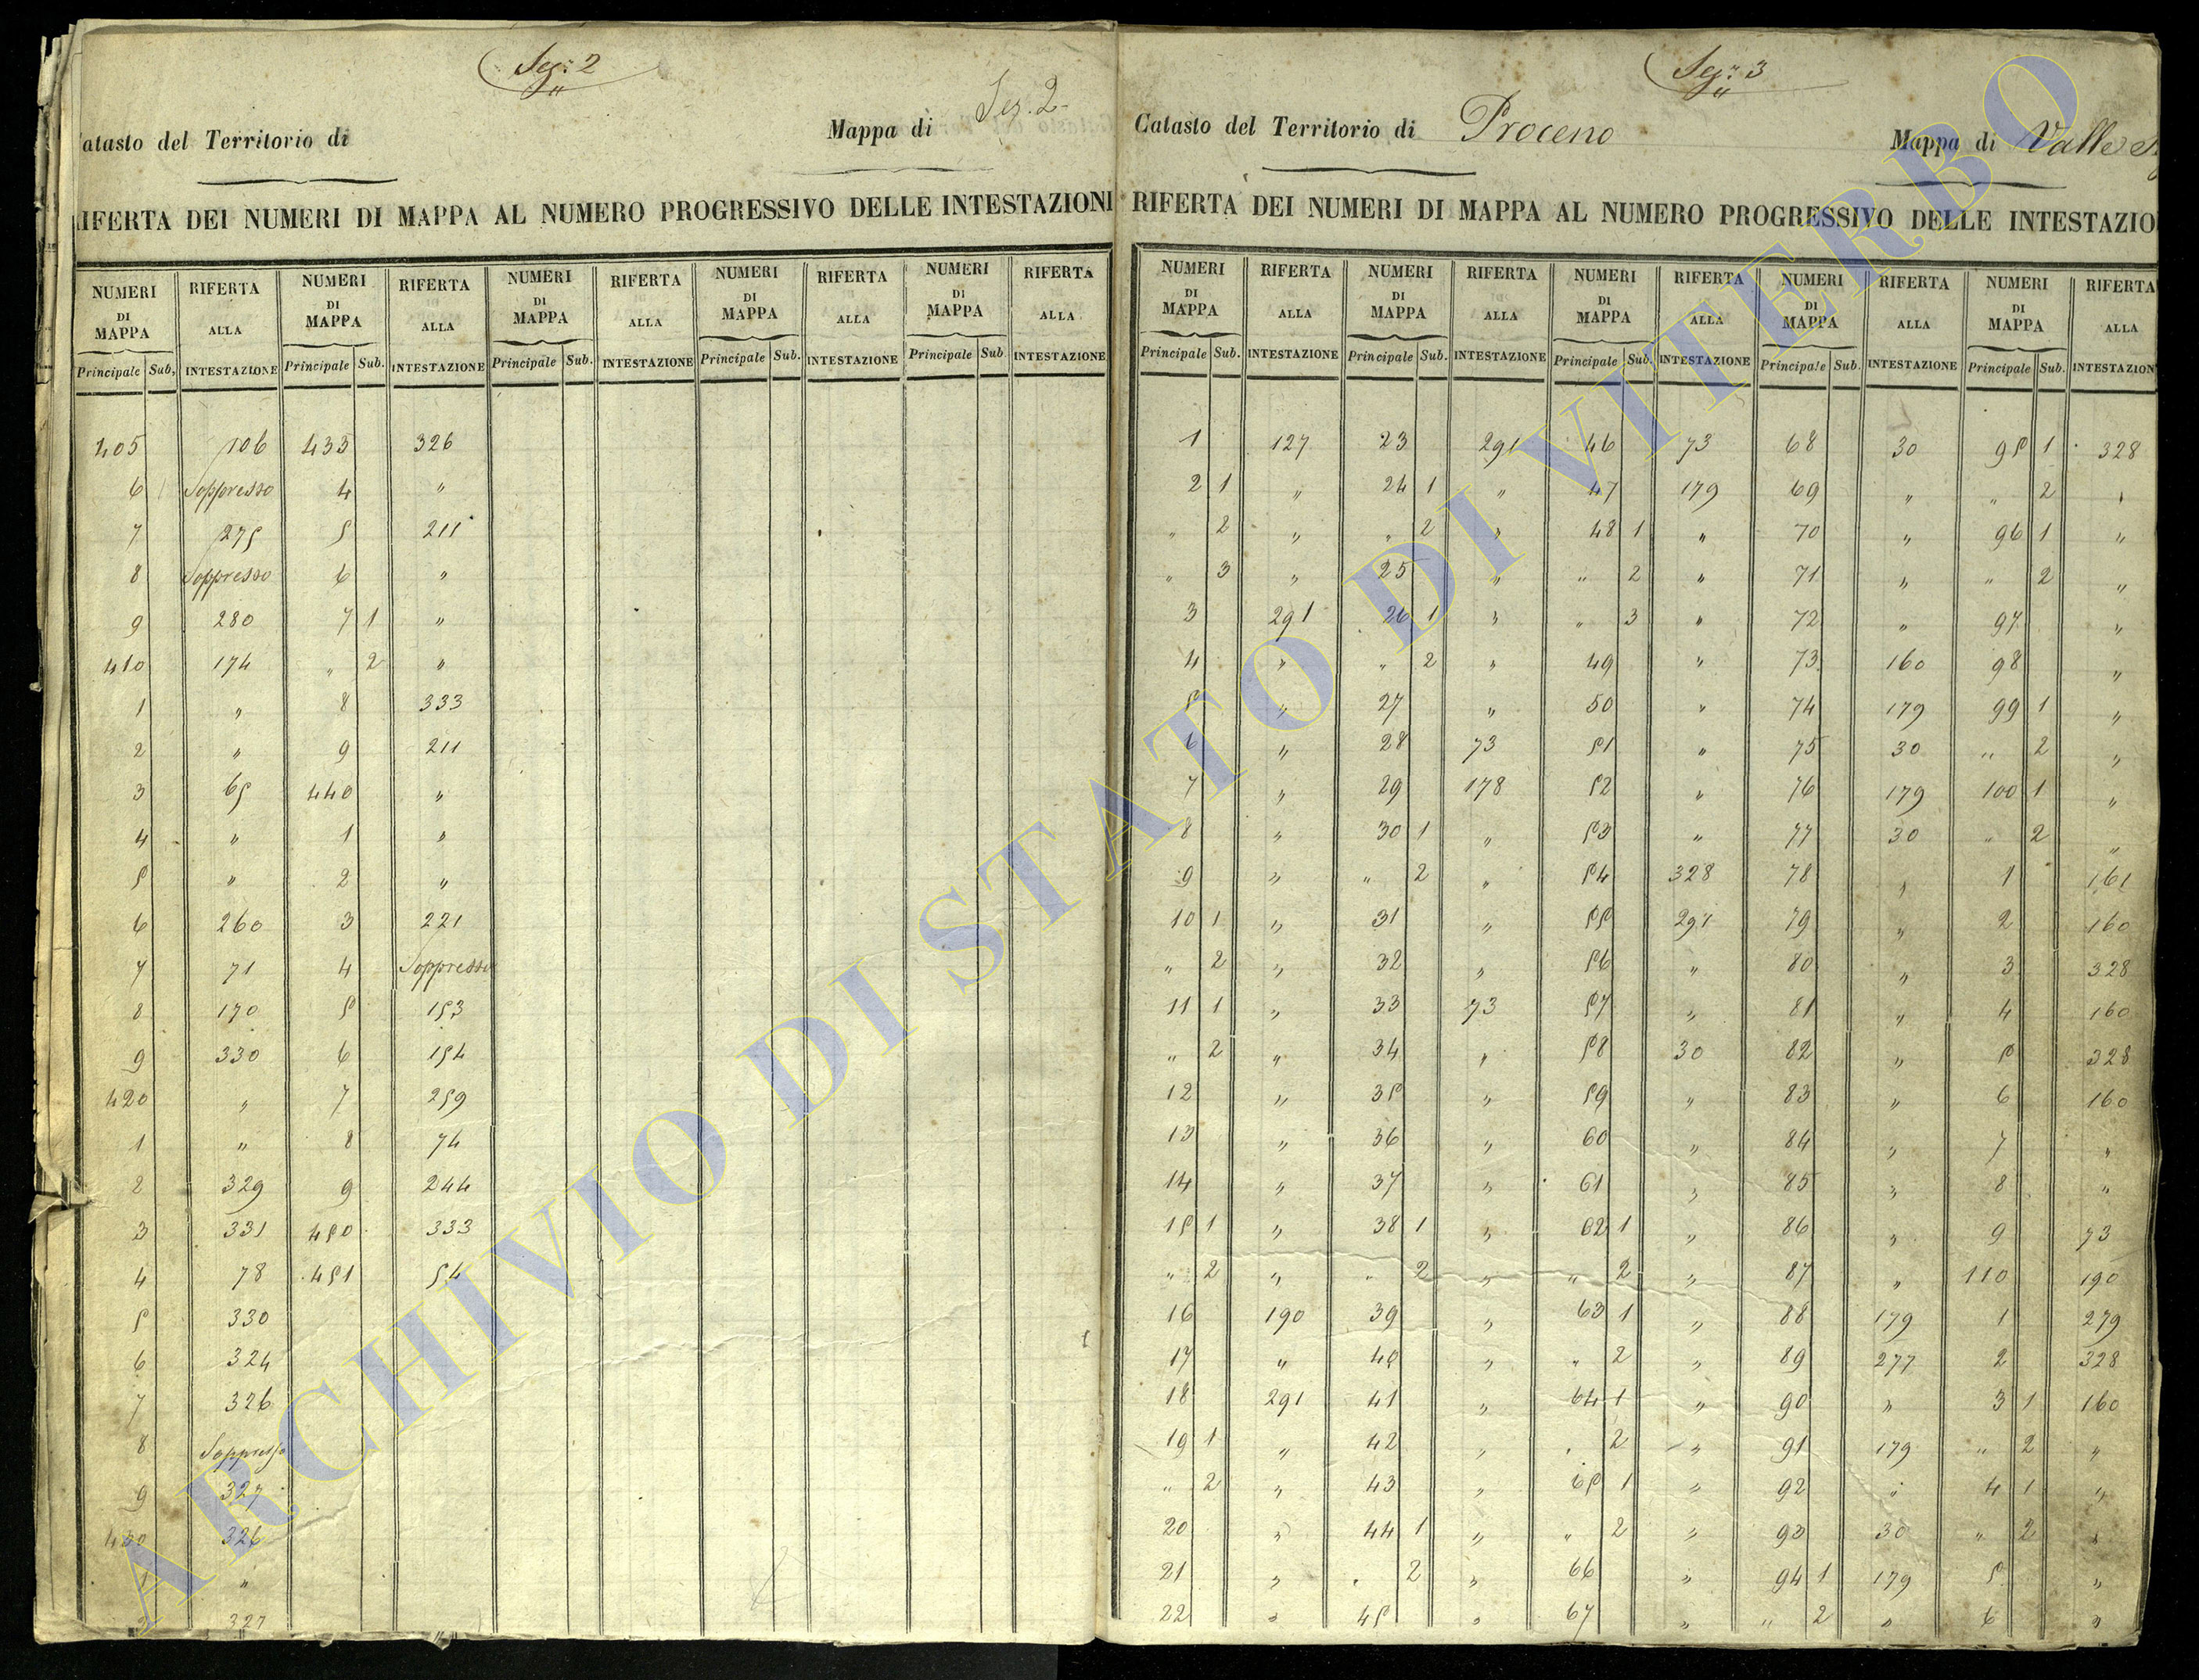 Sez: 2
Sez. 2
atasto del Territorio di
Mappa di
IFERTA DEI NUMERI DI MAPPA AL NUMERO PROGRESSIVO DELLE INTESTAZIONI
NUMERI DI MAPPA RIFERTA ALLA INTESTAZIONE NUMERI DI MAPPA RIFERTA ALLA INTESTAZIONE NUMERI DI MAPPA RIFERTA ALLA INTESTAZIONE NUMERI DI MAPPA RIFERTA ALLA INTESTAZIONE NUMERI DI MAPPA RIFERTA ALLA INTESTAZIONE
Principale Sub. Principale Sub. Principale Sub. Principale Sub. Principale Sub
405 106 433 326
6 Soppresso 4 "
7 275 5 211
8 Soppresso 6 "
9 280 7 1 "
410 174 " 2 "
1 " 8 333
2 " 9 211
3 65 440 "
4 " 1 "
5 " 2 "
6 260 3 221
7 71 4 Soppresso
8 170 5 153
9 330 6 154
420 " 7 259
1 " 8 74
2 329 9 244
3 331 450 333
4 78 451 54
5 330
6 324
7 326
8 Soppresso
9 327
430 326
1 "
2 327
Sez: 3
Catasto del Territorio di Proceno
Mappa di Valle
RIFERTA DEI NUMERI DI MAPPA AL NUMERO PROGRESSIVO DELLE INTESTAZIO
NUMERI DI MAPPA RIFERTA ALLA INTESTAZIONE NUMERI DI MAPPA RIFERTA ALLA INTESTAZIONE NUMERI DI MAPPA RIFERTA ALLA INTESTAZIONE NUMERI DI MAPPA RIFERTA ALLA INTESTAZIONE NUMERI DI MAPPA RIFERTA ALLA INTESTAZION
Principale Sub. Principale Sub. Principale Sub. Principale Sub. Principale Sub.
1 127 23 291 46 73 68 30 95 1 328
2 1 " 24 1 " 47 179 69 " " 2 "
" 2 " " 2 " 48 1 " 70 " 96 1 "
" 3 " 25 " " 2 " 71 " " 2 "
3 291 26 1 " " 3 " 72 " 97 "
4 " " 2 " 49 " 73 160 98 "
5 " 27 " 50 " 74 179 99 1 "
6 " 28 73 51 " 75 30 " 2 "
7 " 29 178 52 " 76 179 100 1 "
8 " 30 1 " 53 " 77 30 " 2 "
9 " " 2 " 54 328 78 " 1 161
10 1 " 31 " 55 291 79 " 2 160
" 2 " 32 " 56 " 80 " 3 328
11 1 " 33 73 57 " 81 " 4 160
" 2 " 34 " 58 30 82 " 5 328
12 " 35 " 59 " 83 " 6 160
13 " 36 " 60 " 84 " 7 "
14 " 37 " 61 " 85 " 8 "
15 1 " 38 1 " 62 1 " 86 " 9 73
" 2 " " 2 " " 2 " 87 " 110 190
16 190 39 " 63 1 " 88 179 1 279
17 " 40 " " 2 " 89 277 2 328
18 291 41 " 64 1 " 90 " 3 1 160
19 1 " 42 " " 2 " 91 179 " 2 "
" 2 " 43 " 65 1 " 92 " 4 1 "
20 " 44 1 " " 2 " 93 30 " 2 "
21 " " 2 " 66 " 94 1 179 5 "
22 " 45 " 67 " " 2 " 6 "
ARCHIVIO DI STATO DI VITERBO